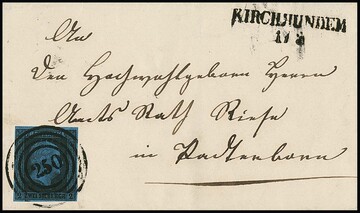 KIRCHHUNDEM
17 8
An
den Hochwohlgeborn Herrn
Amts Rath Riese
in Paderborn
250